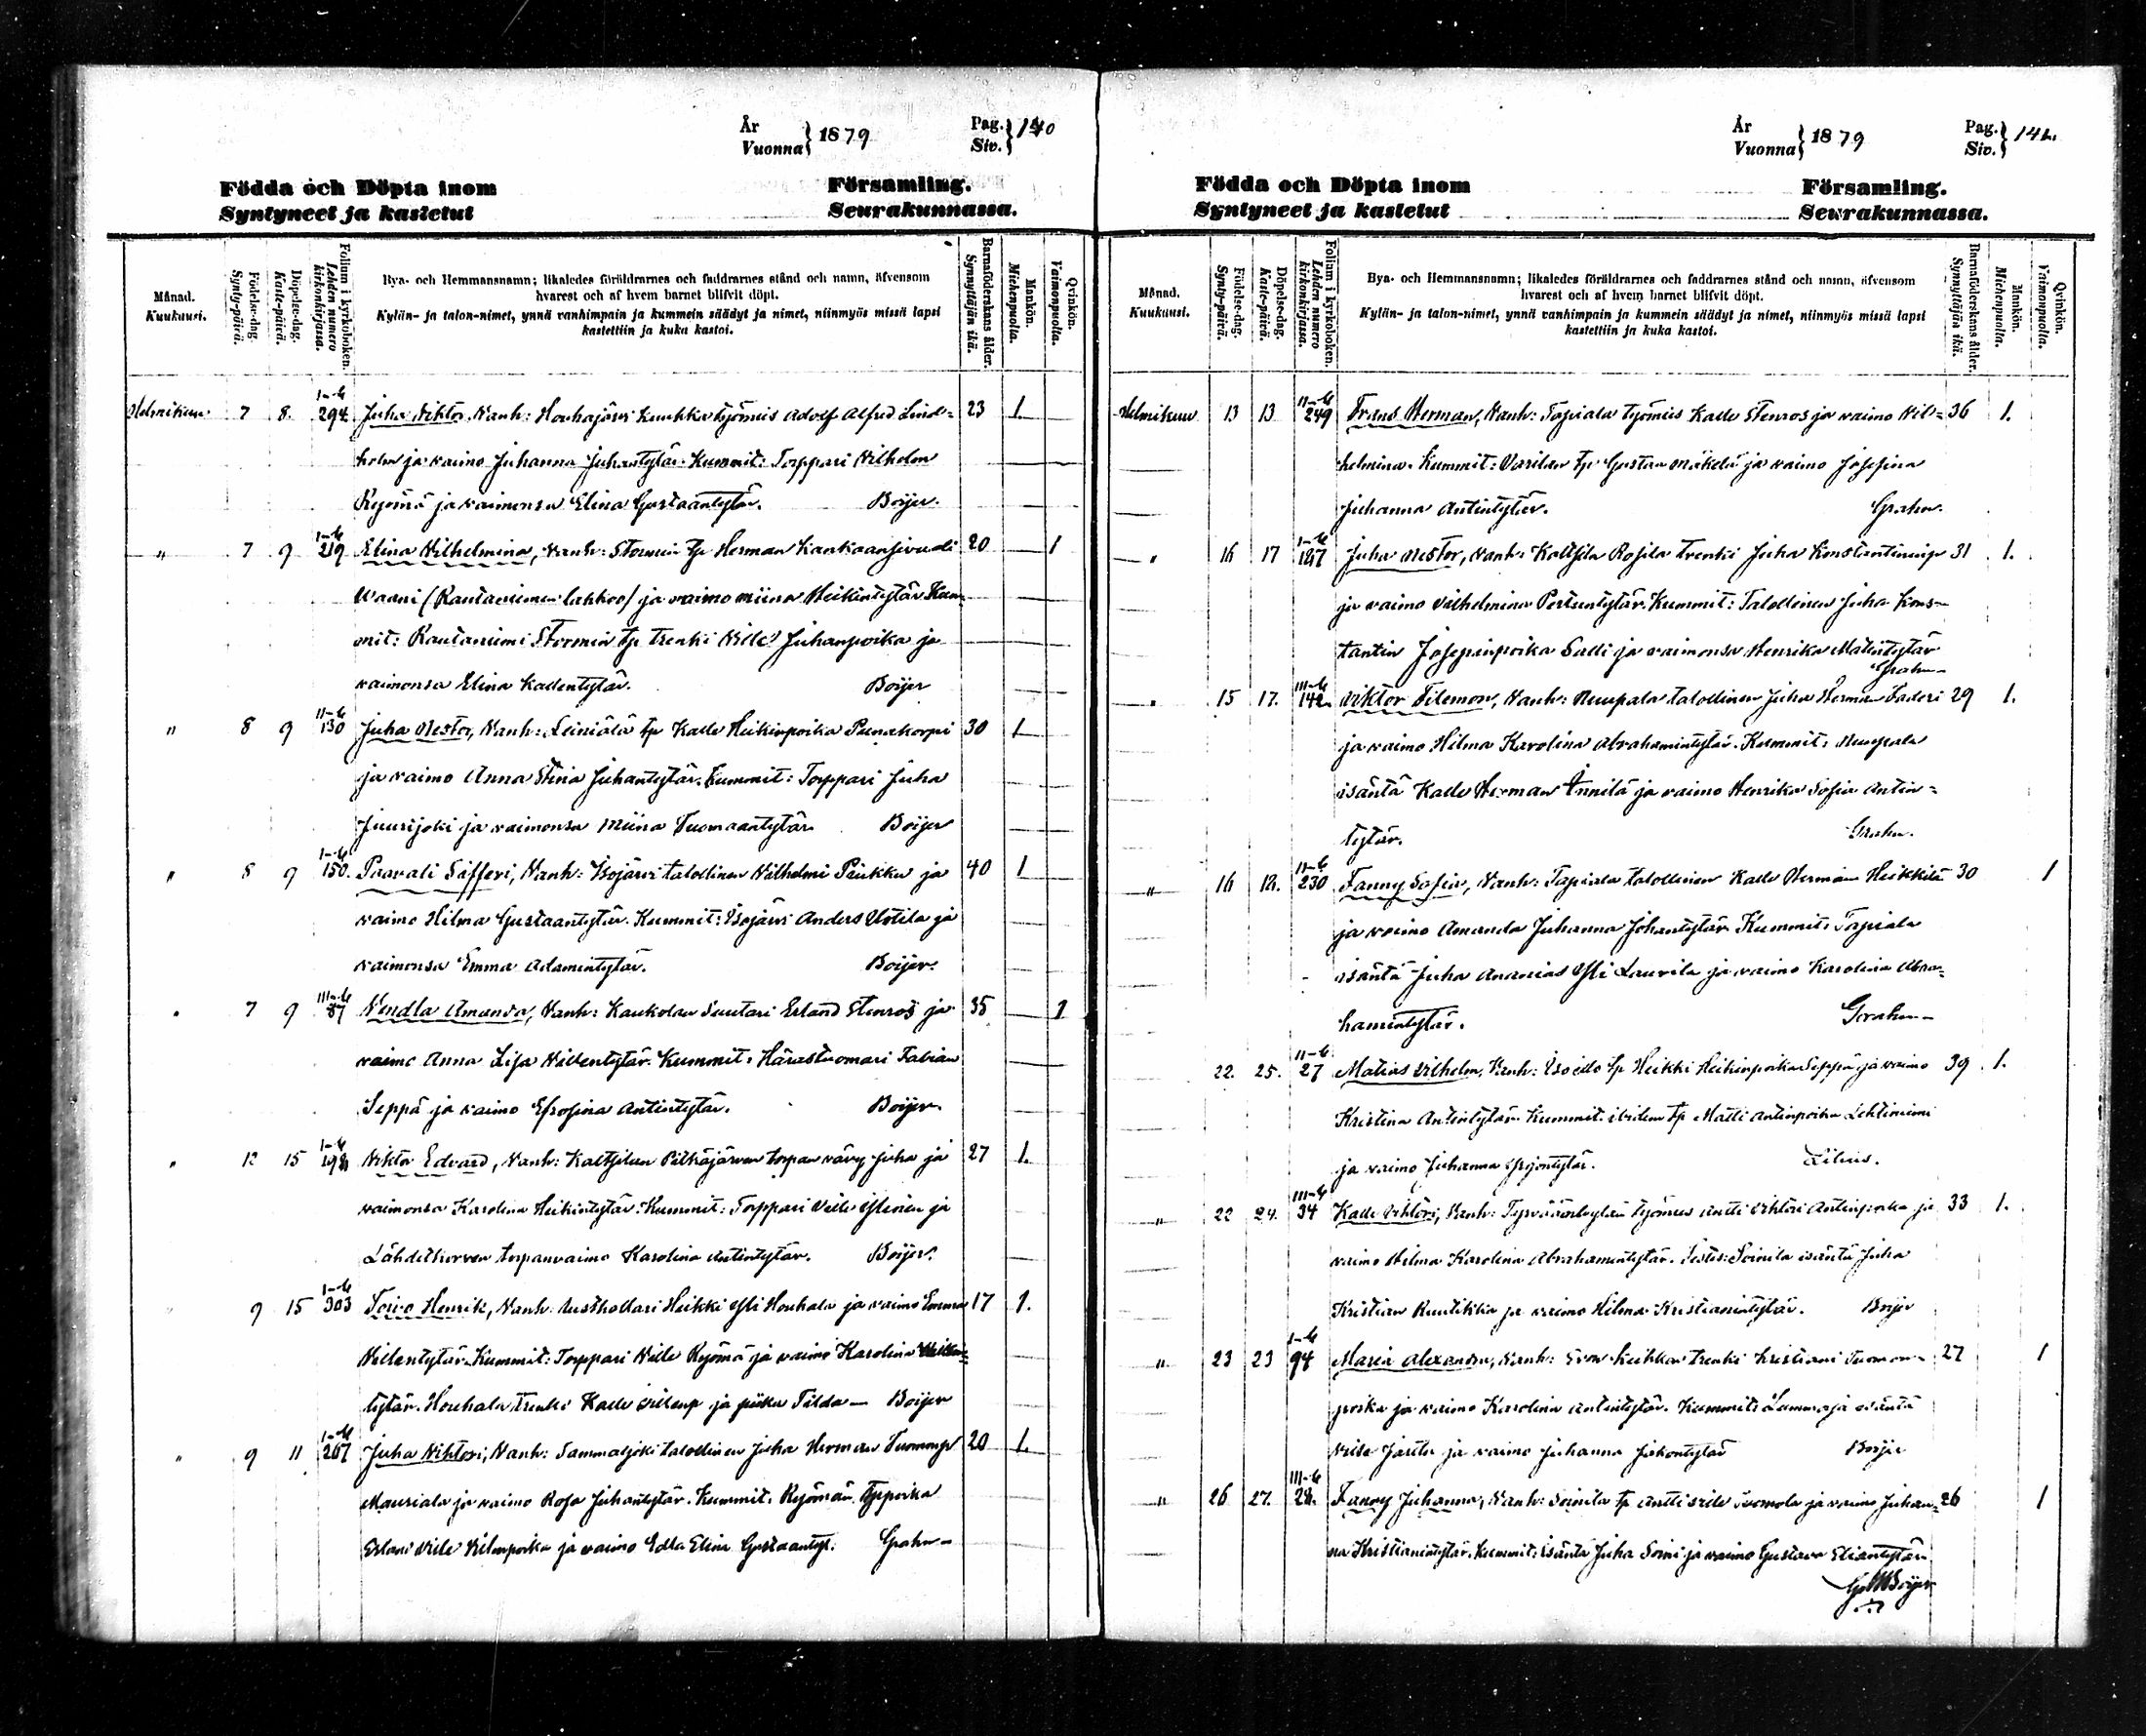 År
Vuonna } 1879
Pag.
Siv. } 140
Födda och Döpta inom Församling.
Syntyneet ja kastetut Seurakunnassa.
Månad.
Kuukausi.
Födelse-dag.
Synty-päivä.
Döpelse-dag.
Kaste-päivä.
Folium i kyrkoboken.
Lehden numero kirkonkirjassa.
Bya- och Hemmansnamn; likaledes föräldrarnes och faddrarnes stånd och namn, äfvensom
hvarest och af hvem barnet blifvit döpt.
Kylän- ja talon-nimet, ynnä vanhimpain ja kummein säädyt ja nimet, niinmyös missä lapsi
kastettiin ja kuka kastoi.
Barnaföderskans ålder.
Synnyttäjän ikä.
Mankön.
Miehenpuolta.
Qvinkön.
Vaimonpuolta.
Helmikuu 7 8 294 Juha Viktor, Vanh: Houhajärvi Kuukka työmies Adolf Alfred Lind= 23 1
holm ja vaimo Juhanna Juhantytär. Kummit: Torppari Vilhelm
Ryömä ja vaimonsa Elina Gustaantytär. Boijer.
" 7 9 219 Elina Vilhelmina, Vanh: Stormin tp Herman Kankaansivudi 20 1
Waani (Rautaniemen lahkoo) ja vaimo Miina Heikintytär Kum
mit: Rautaniemi Stormin tp trenki Ville Juhanpoika ja
vaimonsa Elina Kallentytär. Boijer
" 8 9 130 Juha Nestor, Vanh: Leiniälä tp Kalle Heikinpoika Punakorpi 30 1
ja vaimo Anna Stina Juhantytär. Kummit: Torppari Juha
Juurijoki ja vaimonsa Miina Tuomaantytär Boijer
" 8 9 150. Paavali Sifferi, Vanh: Isojärvi talollinen Vilhelmi Piukku ja 40 1
vaimo Hilma Gustaantytär. Kummit: Isojärvi Anders Uotila ja
vaimonsa Emma Adamintytär. Boijer.
" 7 9 87 Vendla Amanda, Vanh: Kaukolan Suutari Erland Stenros ja 35 1
vaimo Anna Lisa Villentytär. Kummit: Härastuomari Fabian
Seppä ja vaimo Efrosina Antintytär. Boijer.
" 12 15 Viktor Edvard, Vanh: Kaltsilan Pitkäjärven torpan vävy Juha ja 27 1.
vaimonsa Karolina Heikintytär. Kummit: Torppari Ville ja
Lähdekorven torpanvaimo Karolina Antintytär. Boijer.
9 15 303 Toivo Henrik, Vanh: Rusthollari Heikki Houhala ja vaimo Emma 17 1.
Villentytär. Kummit: Torppari Ville Ryömä ja vaimo Karolina
tytär. Houhala trenki Kalle ja piika Tilda — Boijer
" 9 11 267 Juha Vihtori, Vanh: Sammaljoki talollinen Juha Herman Tuomanp 20 1.
Mauriala ja vaimo Rosa Juhantytär. Kummit: Ryömän
Ville ja vaimo Edla Elina Gustaantyt. Grahn—
År
Vuonna } 1879
Pag.
Siv. } 141.
Födda och Döpta inom Församling.
Syntyneet ja kastetut Seurakunnassa.
Månad.
Kuukausi.
Födelse-dag.
Synty-päivä.
Döpelse-dag.
Kaste-päivä.
Folium i kyrkoboken.
Lehden numero kirkonkirjassa.
Bya- och Hemmansnamn; likaledes föräldrarnes och faddrarnes stånd och namn, äfvensom
hvarest och af hvem barnet blifvit döpt.
Kylän- ja talon-nimet, ynnä vanhimpain ja kummein säädyt ja nimet, niinmyös missä lapsi
kastettiin ja kuka kastoi.
Barnaföderskans ålder.
Synnyttäjän ikä.
Mankön.
Miehenpuolta.
Qvinkön.
Vaimonpuolta.
Helmikuu 13 13 249 Frans Herman, Vanh: Tapiala työmies Kalle Stenros ja vaimo Vil= 36 1.
helmina. Kummit: tp Gustaa Mäkelä ja vaimo Josefina
Juhanna Antintytär. Grahn.
" 16 17 187 Juha Nestor, Vanh: Kaltsila Rosila trenki Juha Konstantininp 31 1.
ja vaimo Vilhelmina Pertuntytär. Kummit: Talollinen Juha Kons=
tantin Josepinpoika Salli ja vaimonsa Henrika Matintytär
Grahn—
" 15 17. 142 Viktor Filemon, Vanh: Nuupala talollinen Juha Herman 29 1.
ja vaimo Hilma Karolina Abrahamintytär. Kummit: Nuupala
isäntä Kalle Herman Innilä ja vaimo Henrika Sofia Antin=
tytär. Grahn.
" 16 18. 230 Fanny Sofia, Vanh: Tapiala talollinen Kalle Herman Heikkilä 30 1
ja vaimo Amanda Juhanna Johantytär Kummit: Tapiala
isäntä Juha Ananias Laurila ja vaimo Karolina Abra=
hamintytär. Grahn—
22. 25. 27 Matias Vilhelm, Vanh: tp Heikki Heikinpoika Seppä ja vaimo 39 1.
Kristina Antintytär. Kummit: ibidem tp Matti Antinpoika Lehtiniemi
ja vaimo Juhanna Yrjöntytär. Lilius.
" 22 24. 34 Kalle Vihtori, Vanh: työmies Antti Vihtori Antinpoika ja 33 1.
vaimo Hilma Karolina Abrahamintytär. Testes: Soinila isäntä Juha
Kristian Ruutikka ja vaimo Hilma Kristianintytär. Boijer
" 23 23 94 Maria Alexandra, Vanh: trenki Kristiani Tuoman= 27 1
poika ja vaimo Karolina Antintytär. Kummit: Lammaja isäntä
Ville ja vaimo Juhanna Jakontytär Boijer
" 26 27. 28. Fanny Juhanna, Vanh: Soinila tp Antti Ville Tuomola ja vaimo Juhan= 26 1
na Kristianintytär. Kummit: isäntä Juha Soini ja vaimo Gustava Eliantytär
Boijer